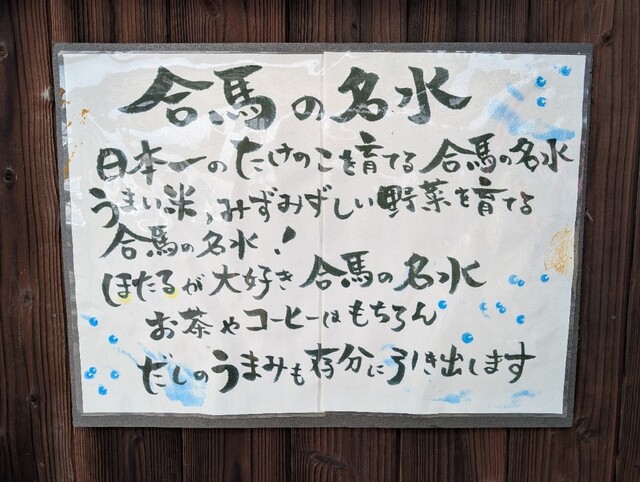 合馬の名水
日本一のたけのこを育てる 合馬の名水
うまい米、みずみずしい野菜を育てる
合馬の名水!
ほたるが大好き 合馬の名水
お茶やコーヒーはもちろん
だしのうまみも存分に引き出します